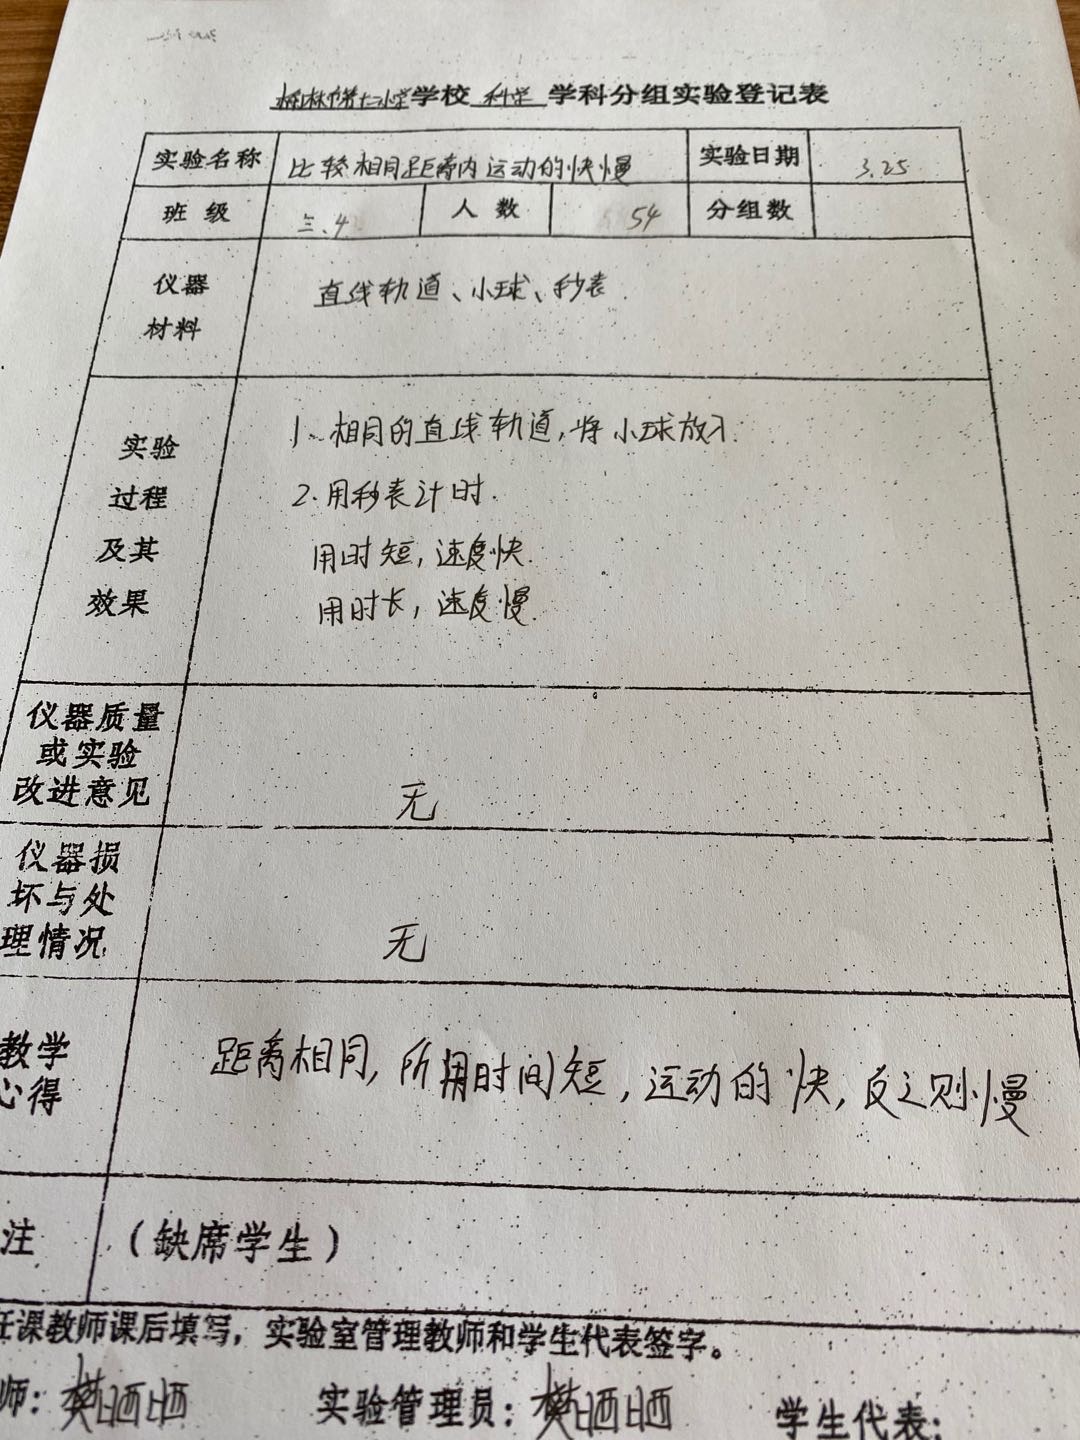 榆林市第十二小学学校 科学 学科分组实验登记表
实验名称 比较相同距离内运动的快慢 实验日期 3.25
班级 三.4 人数 54 分组数
仪器
材料
直线轨道、小球、秒表
实验
过程
及其
效果
1、相同的直线轨道,将小球放入.
2.用秒表计时.
用时短,速度快.
用时长,速度慢.
仪器质量
或实验
改进意见
无
仪器损
坏与处
理情况
无
教学
心得
距离相同,所用时间短,运动的快,反之则慢
注 (缺席学生)
任课教师课后填写,实验室管理教师和学生代表签字。
师:樊晒晒 实验管理员:樊晒晒 学生代表: